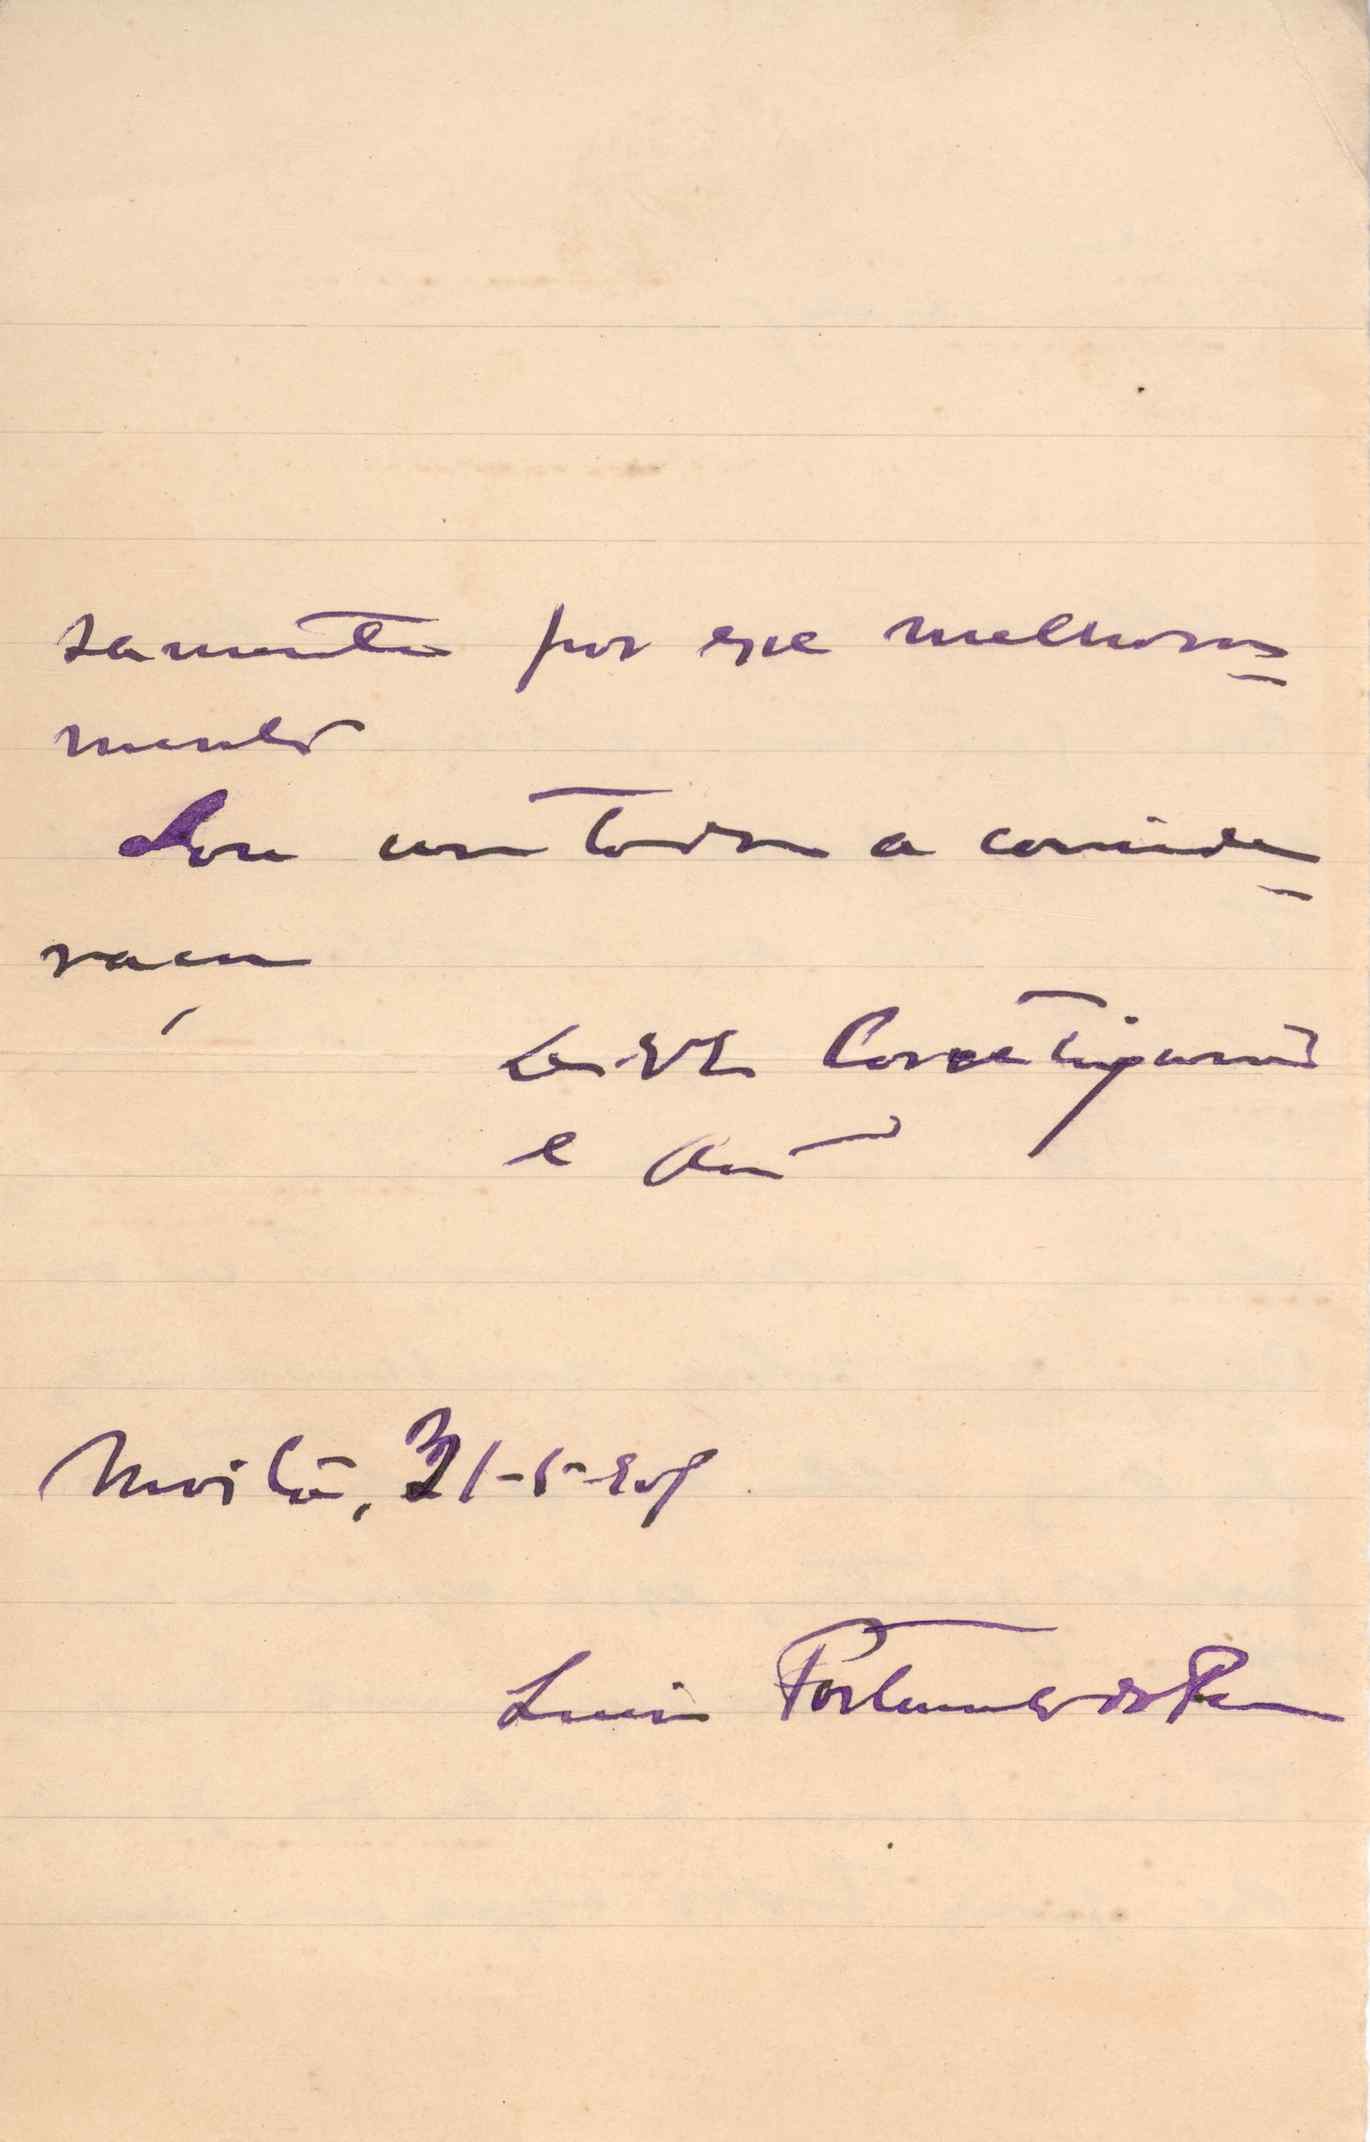 samente por esse melhora-
mento
Sou com toda a conside-
ração
De V. Ex. Correligionario
e Am.º
Covilhã, 31-5-909
Luiz Fortunato da